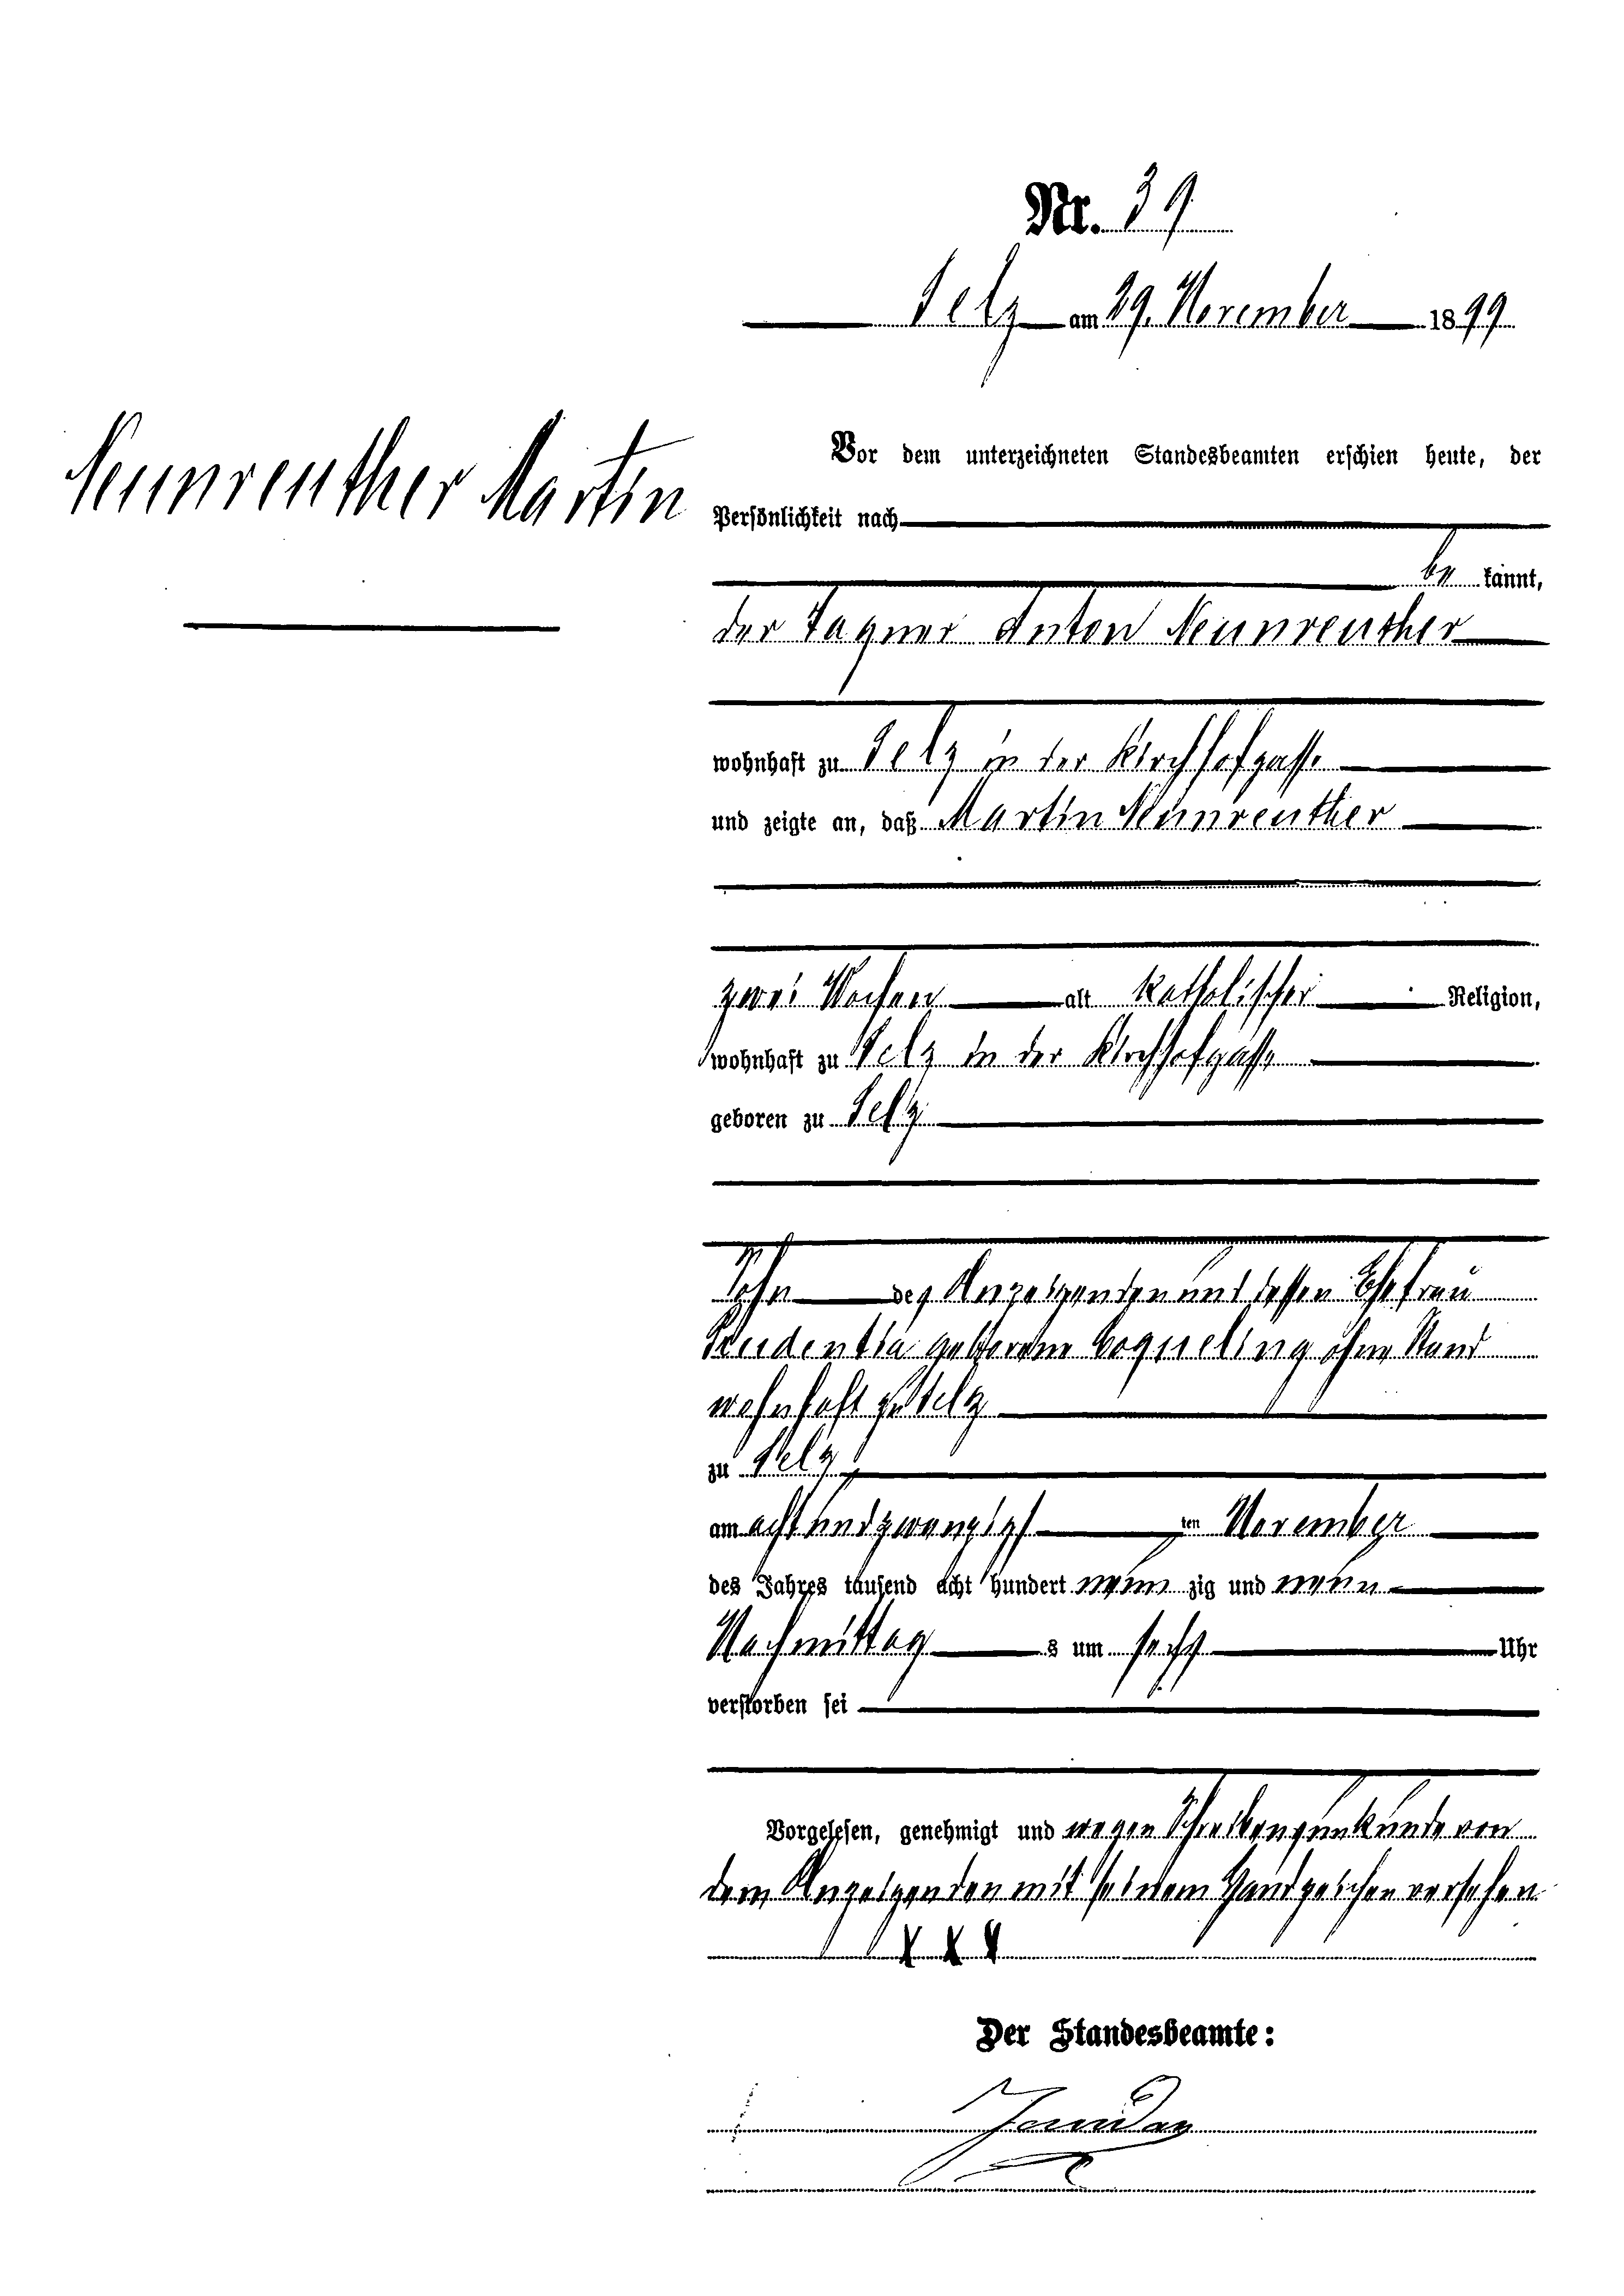 Nr. 39
Selz am 29. November 1899
Neunreuther Martin
Vor dem unterzeichneten Standesbeamten erschien heute, der
Persönlichkeit nach
be kannt,
der Tagner Anton Neunreuther
wohnhaft zu Selz in der Kirchhofgasse
und zeigte an, daß Martin Neunreuther
zwei Wochen alt katholischer Religion,
wohnhaft zu Selz in der Kirchhofgasse
geboren zu Selz
Sohn des Anzeigenden und dessen Ehefrau
Prudentia geborene ohne Stand
wohnhaft zu Selz
zu Selz
am acht und zwanzigsten November
des Jahres tausend acht hundert neun zig und neun
Nachmittag s um sechs Uhr
verstorben sei
Vorgelesen, genehmigt und wegen Schreibensunkunde von
dem Anzeigenden mit seinem Handzeichen versehen
X X X
Der Standesbeamte: